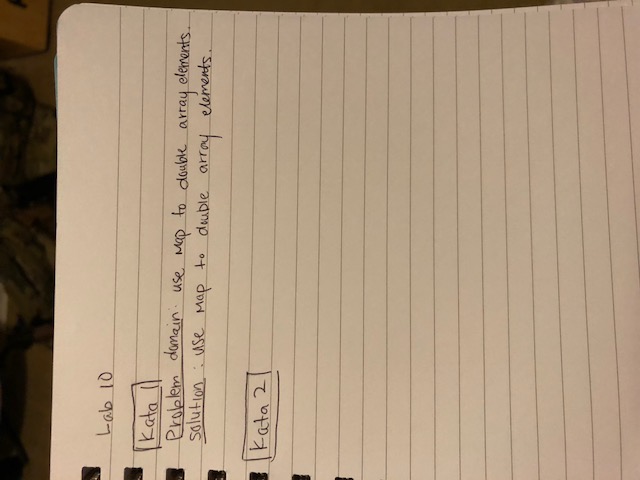 Lab 10
Kata 1
Problem domain: use Map to double array elements.
Solution: use Map to double array elements.
Kata 2